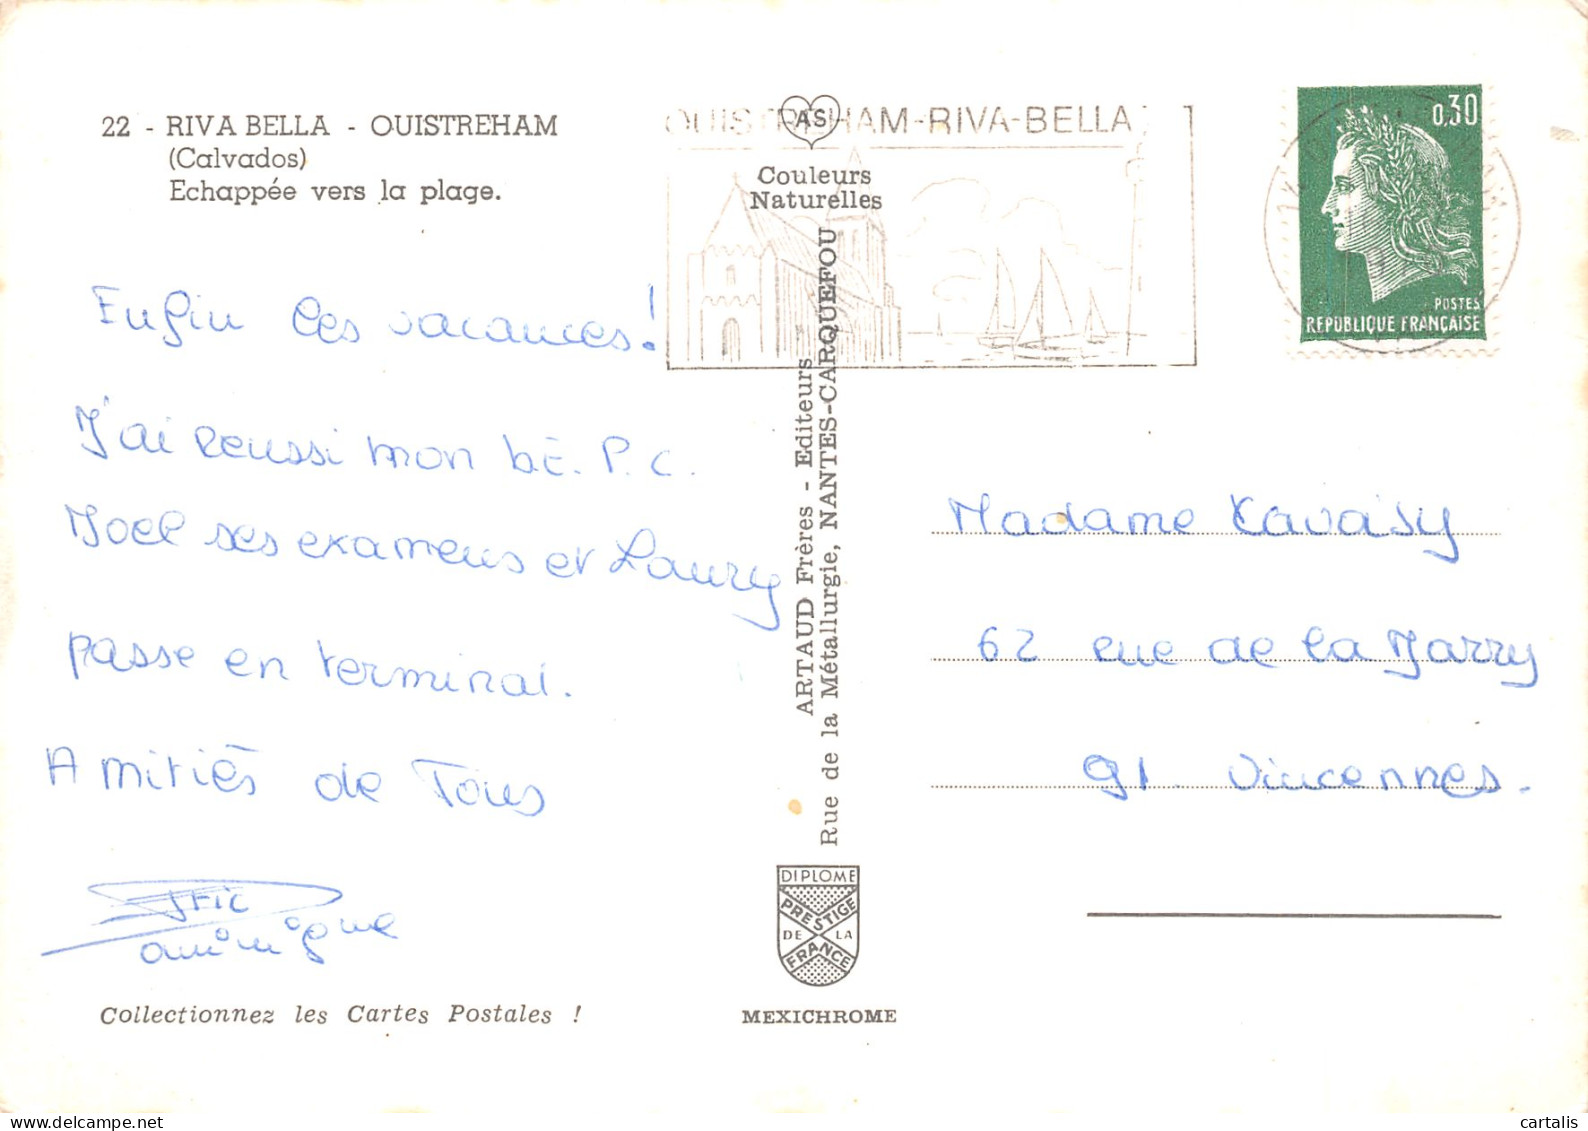 22 - RIVA BELLA - OUISTREHAM
(Calvados)
Echappée vers la plage.
Enfin les vacances!
J'ai reussi mon b.E.P.C.
Joel ses examens et Laury
passe en terminal.
Amitiés de Tous
Collectionnez les Cartes Postales !
OUISTREHAM-RIVA-BELLA
AS
Couleurs
Naturelles
ARTAUD Frères - Editeurs
Rue de la Métallurgie, NANTES-CARQUEFOU
DIPLOME
PRESTIGE
DE LA
FRANCE
MEXICHROME
0,30
POSTES
REPUBLIQUE FRANÇAISE
Madame
62 rue de la Jarry
91. Vincennes.
cartalis